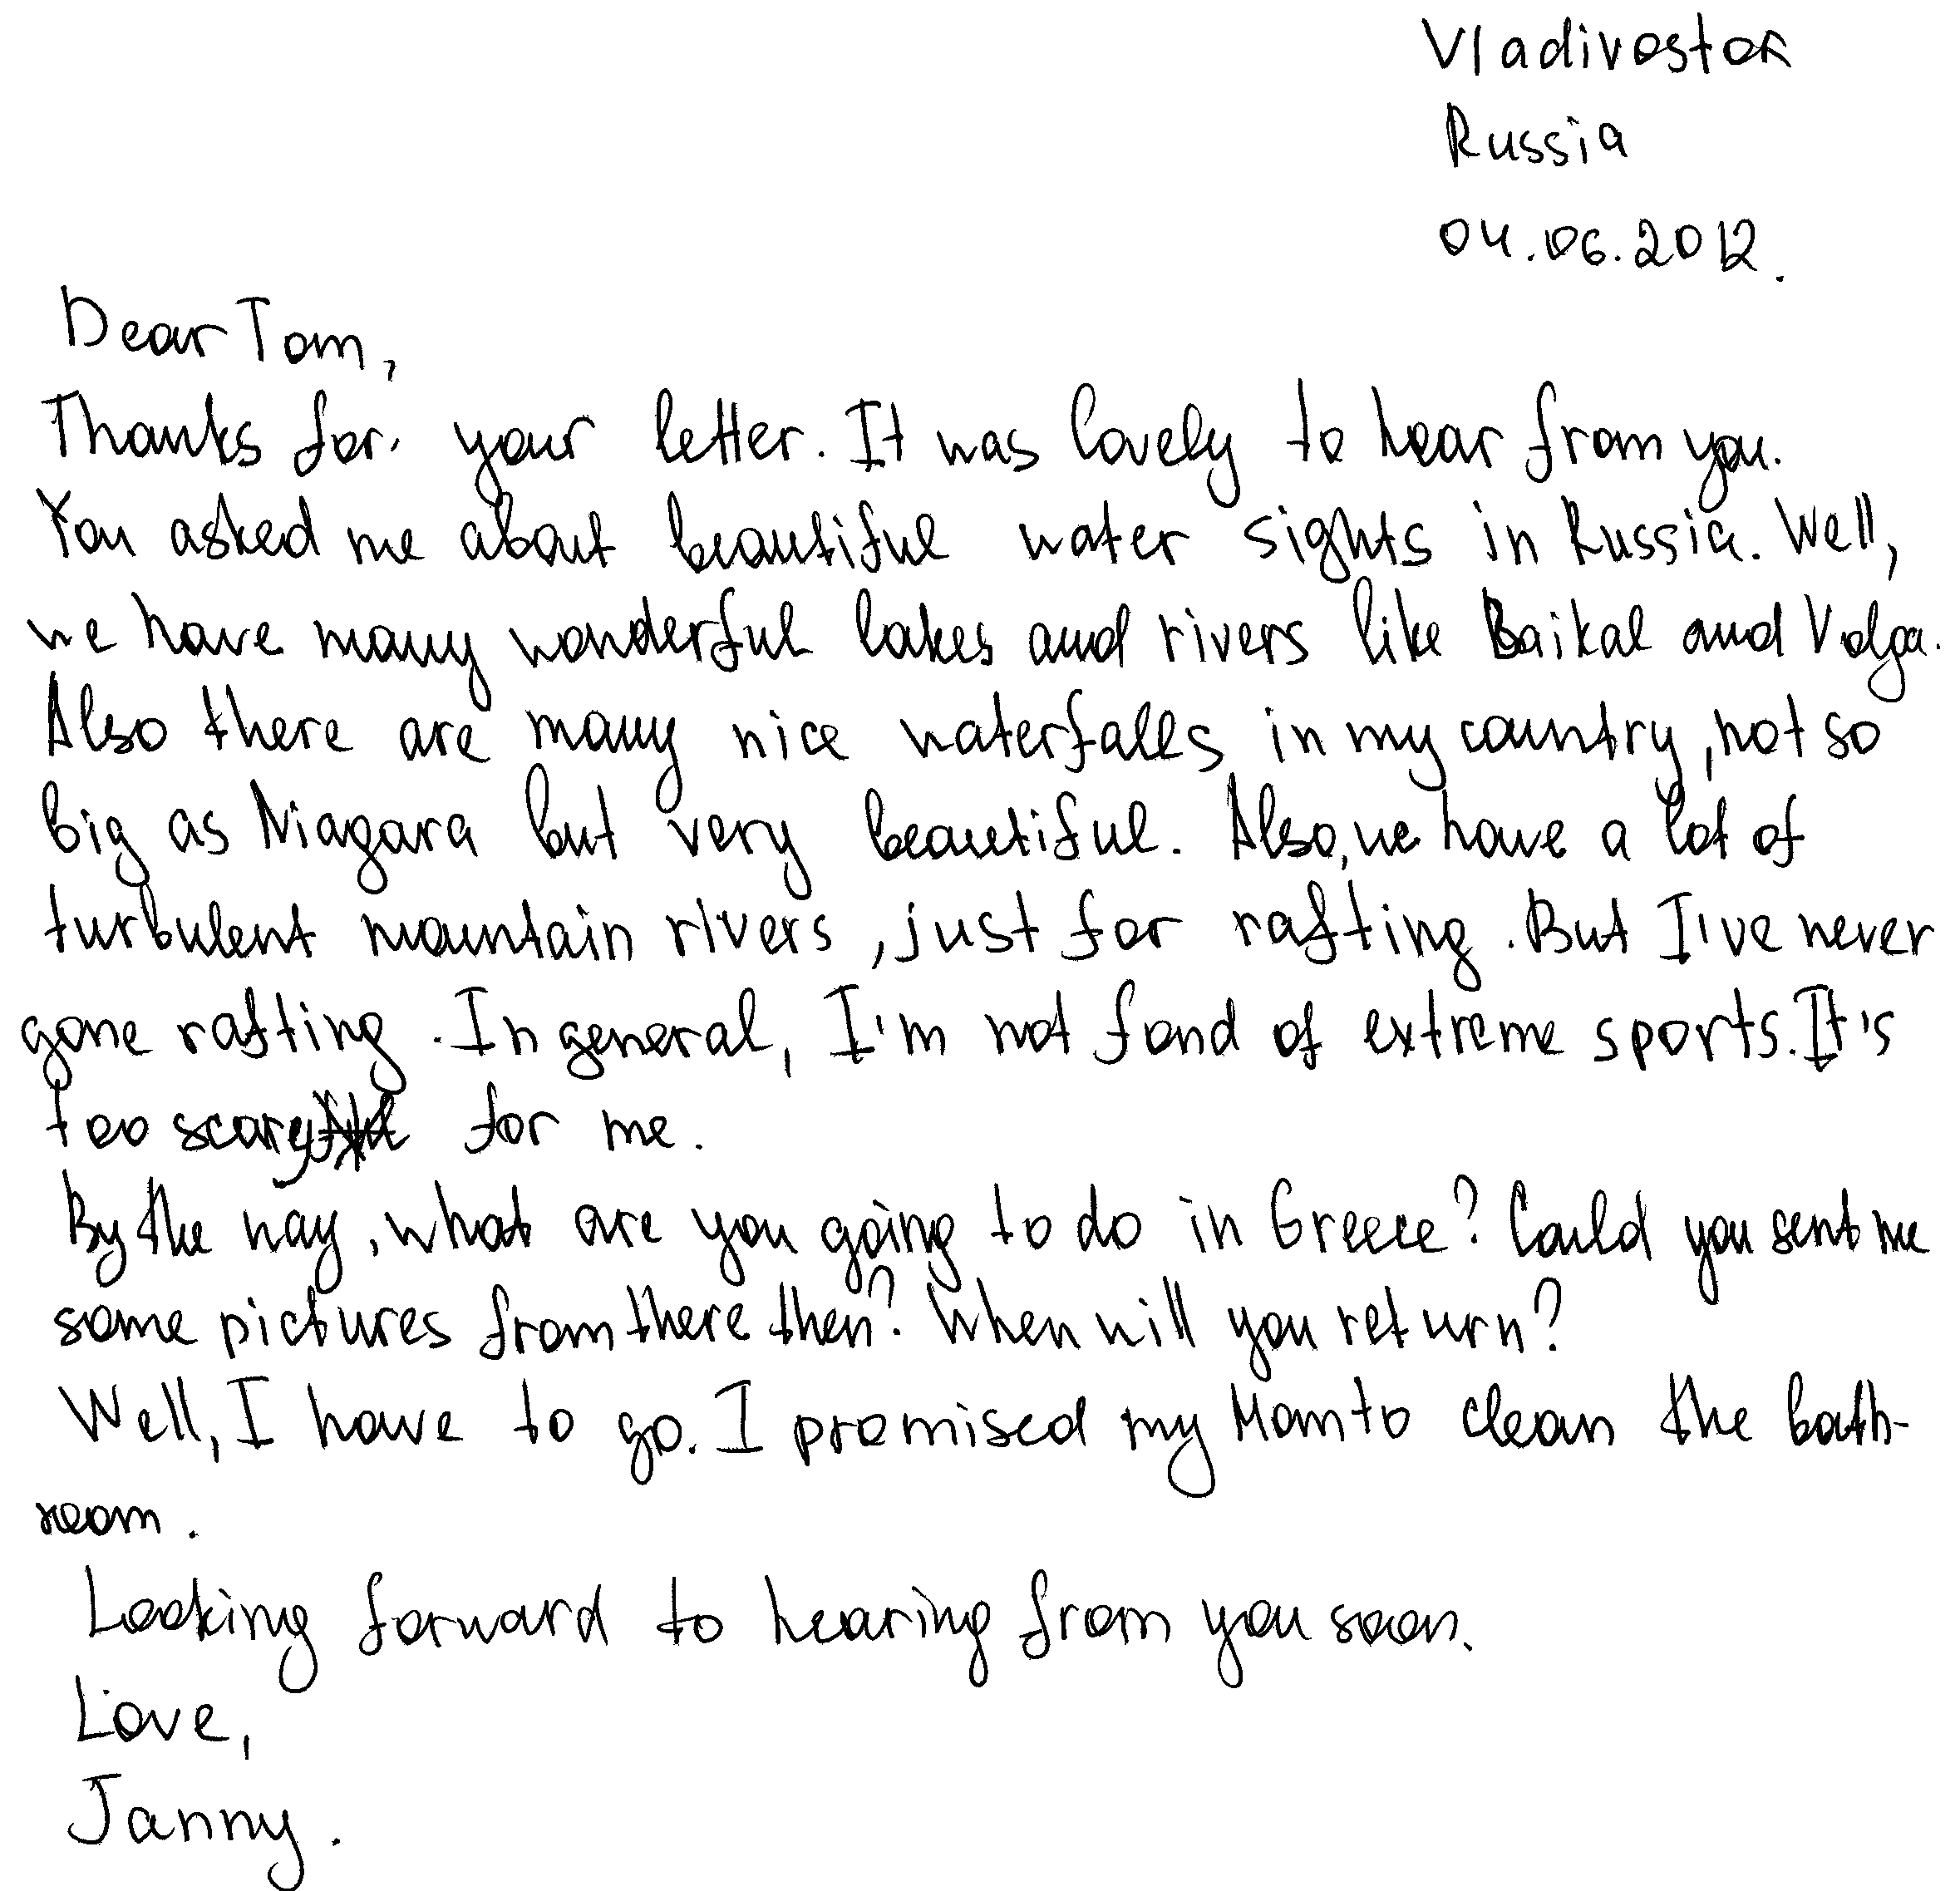 Vladivostok
Russia
04.06.2012.
Dear Tom,
Thanks for your letter. It was lovely to hear from you.
You asked me about beautiful water sights in Russia. Well,
we have many wonderful lakes and rivers like Baikal and Volga.
Also there are many nice waterfalls in my country, not so
big as Niagara but very beautiful. Also, we have a lot of
turbulent mountain rivers, just for rafting. But I've never
gone rafting. In general, I'm not fond of extreme sports. It's
too scary for me.
By the way, what are you going to do in Greece? Could you sent me
some pictures from there then? When will you return?
Well, I have to go. I promised my Mom to clean the bath-
room.
Looking forward to hearing from you soon.
Love,
Janny.